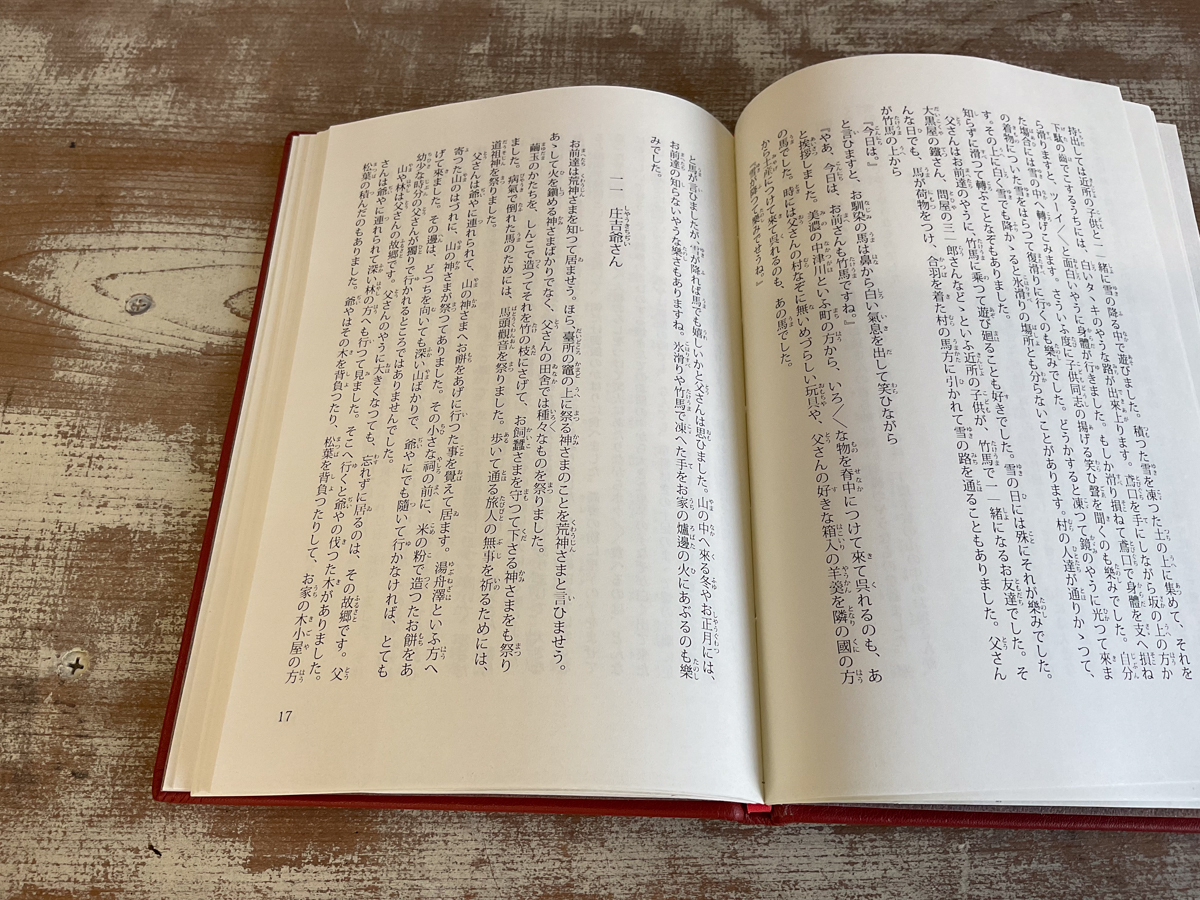 持出しては近所の子供と一緒に雪の降る中で遊びました。積つた雪を凍つた土の上に集めて、それを
下駄の齒でこするうちには、白いタヽキのやうな路が出來上ります。鳶口を手にしながら坂の上の方か
ら滑りますと、ツーイ〳〵と面白いやうに身體が行きました。もしか滑り損ねて鳶口で身體を支へ損ね
た場合には雪の中へ轉げこみます。さういふ度に子供同志の揚げる笑ひ聲を聞くのも樂みでした。自分
の着物についた雪をはらつて復滑りに行くのも樂みでした。どうかすると凍つて鏡のやうに光つて來ま
す。その上に白く雪でも降かゝると氷滑りの場所とも分らないことがあります。村の人達が通りかゝつて、
知らずに滑つて轉ぶことなぞもありました。
父さんはお前達のやうに、竹馬に乘つて遊び廻ることも好きでした。雪の日には殊にそれが樂みでした。
大黒屋の鐵さん、問屋の三郎さんなどゝといふ近所の子供が、竹馬で一緒になるお友達でした。そ
んな日でも、馬が荷物をつけ、合羽を着た村の馬方に引かれて雪の路を通ることもありました。父さん
が竹馬の上から
『今日は。』
と言ひますと、お馴染の馬は鼻から白い氣息を出して笑ひながら
『やあ、今日は、お前さんも竹馬ですね。』
と挨拶しました。美濃の中津川といふ町の方から、いろ〳〵な物を脊中につけて來て呉れるのも、あ
の馬でした。時には父さんの村なぞに無いめづらしい玩具や、父さんの好きな箱入の羊羹を隣の國の方
から土産につけて來て呉れるのも、あの馬でした。
『雪が降つて樂みでせうね。』
と馬が言ひましたが、雪が降れば馬でも嬉しいかと父さんは思ひました。山の中へ來る冬やお正月には、
お前達の知らないやうな樂さもありますね。氷滑りや竹馬で凍へた手をお家の爐邊の火にあぶるのも樂
みでした。
二 庄吉爺さん
お前達は荒神さまを知つて居ませう。ほら、臺所の竈の上に祭る神さまのことを荒神さまと言ひませう。
あゝして火を鎭める神さまばかりでなく、父さんの田舍では種々なものを祭りました。
繭玉のかたちを、しんこで造つてそれを竹の枝にさげて、お飼蠶さまを守つて下さる神さまをも祭り
ました。病氣で倒れた馬のためには、馬頭觀音を祭りました。歩いて通る旅人の無事を祈るためには、
道祖神を祭りました。
父さんは爺やに連れられて、山の神さまへお餅をあげに行つた事を覺えて居ます。湯舟澤といふ方へ
寄つた山のはづれに、山の神さまが祭つてありました。その小さな祠の前に、米の粉で造つたお餅をあ
げて來ました。その邊は、どつちを向いても深い山ばかりで、爺やにでも隨いて行かなければ、とても
幼少な時分の父さんが獨りで行かれるところではありませんでした。
山や林は父さんの故郷です。父さんのやうに大きくなつても、忘れずに居るのは、その故郷です。父
さんは爺やに連れられて深い林の方へも行つて見ました。そこへ行くと爺やの伐つた木がありました。
松葉の積んだのもありました。爺やはその木を背負つたり、松葉を背負つたりして、お家の木小屋の方
17